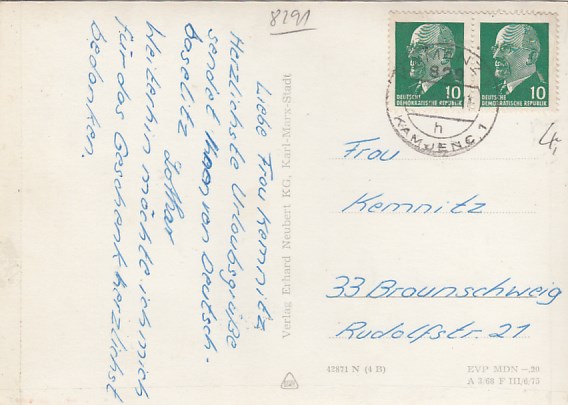 8291
Liebe Frau Kemnitz
Herzlichste Urlaubsgrüße
sendet Ihnen von Deutsch-
baselitz Lothar
Weiterhin möchte ich mich
für das Geschenk herzlichst
bedanken.
Verlag Erhard Neubert KG, Karl-Marx-Stadt
10
DEUTSCHE
DEMOKRATISCHE REPUBLIK
10
DEUTSCHE
DEMOKRATISCHE REPUBLIK
h
KAMJENC 1
4,
Frau
Kemnitz
33 Braunschweig
Rudolfstr. 21
42871 N (4 B)
EVP MDN –.20
A 3/68 F III/6/13